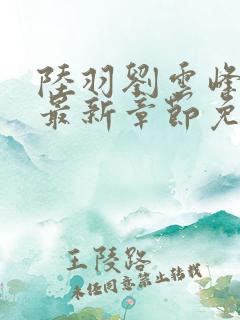 陸羽劉雲峰
最新章節免
王陵路
未经同意禁止转载